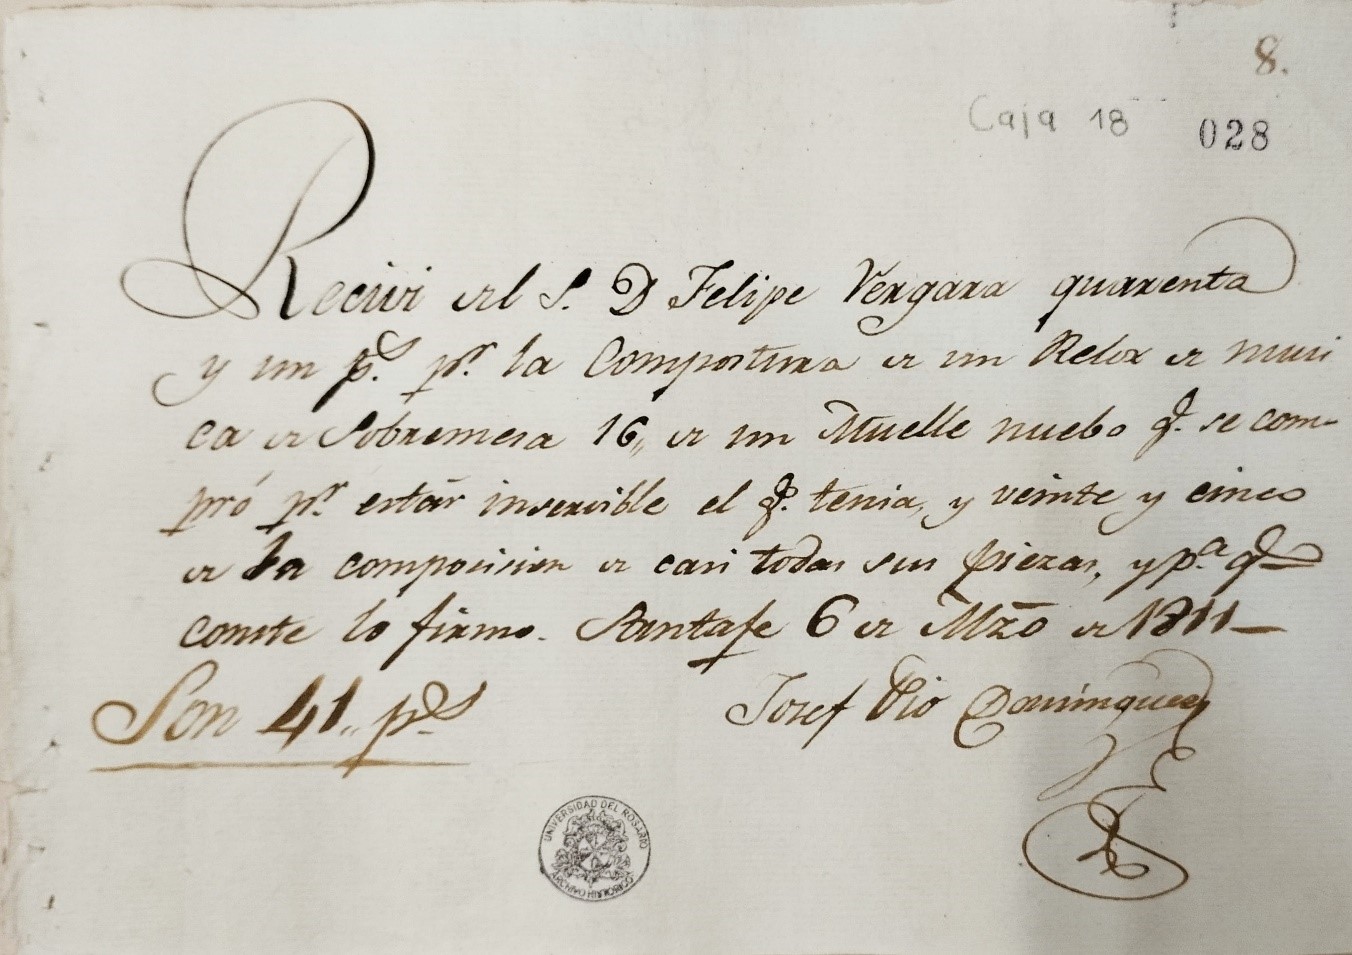 8.
Caja 18 028
Recivi del S. D Felipe Vergara quarenta
y un p.s p.r la Compostura de un Relox de musi
ca de Sobremesa 16,, de un Muelle nuebo q.e se com-
pró p.r estár inservible el q.e tenia, y veinte y cinco
de la composicion de casi todas sus piezas, y p.a q.e
conste lo firmo. Santafe 6 de Mzo de 1811
Son 41,, p.s Josef Pio Domínguez
UNIVERSIDAD DEL ROSARIO
ARCHIVO HISTORICO